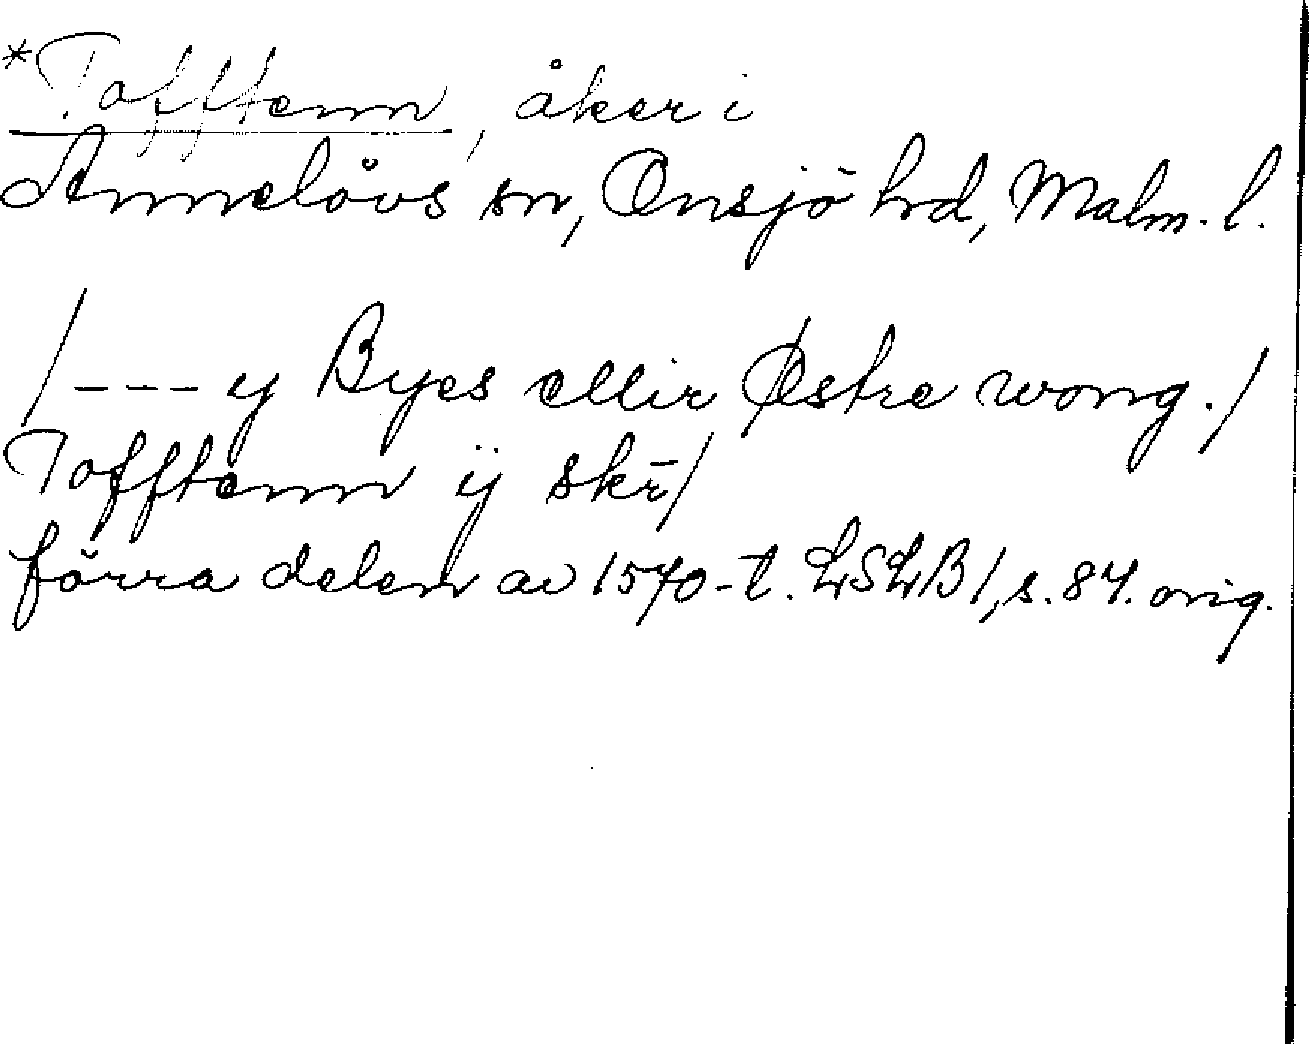 *Tofftenn, åker i
Annelövs sn, Onsjö hd, Malm. l.
/--- y Byes ellir Østre wong./
Tofftenn ÿ skr̄/
förra delen av 1570-t. LSLB 1, s. 84. orig.